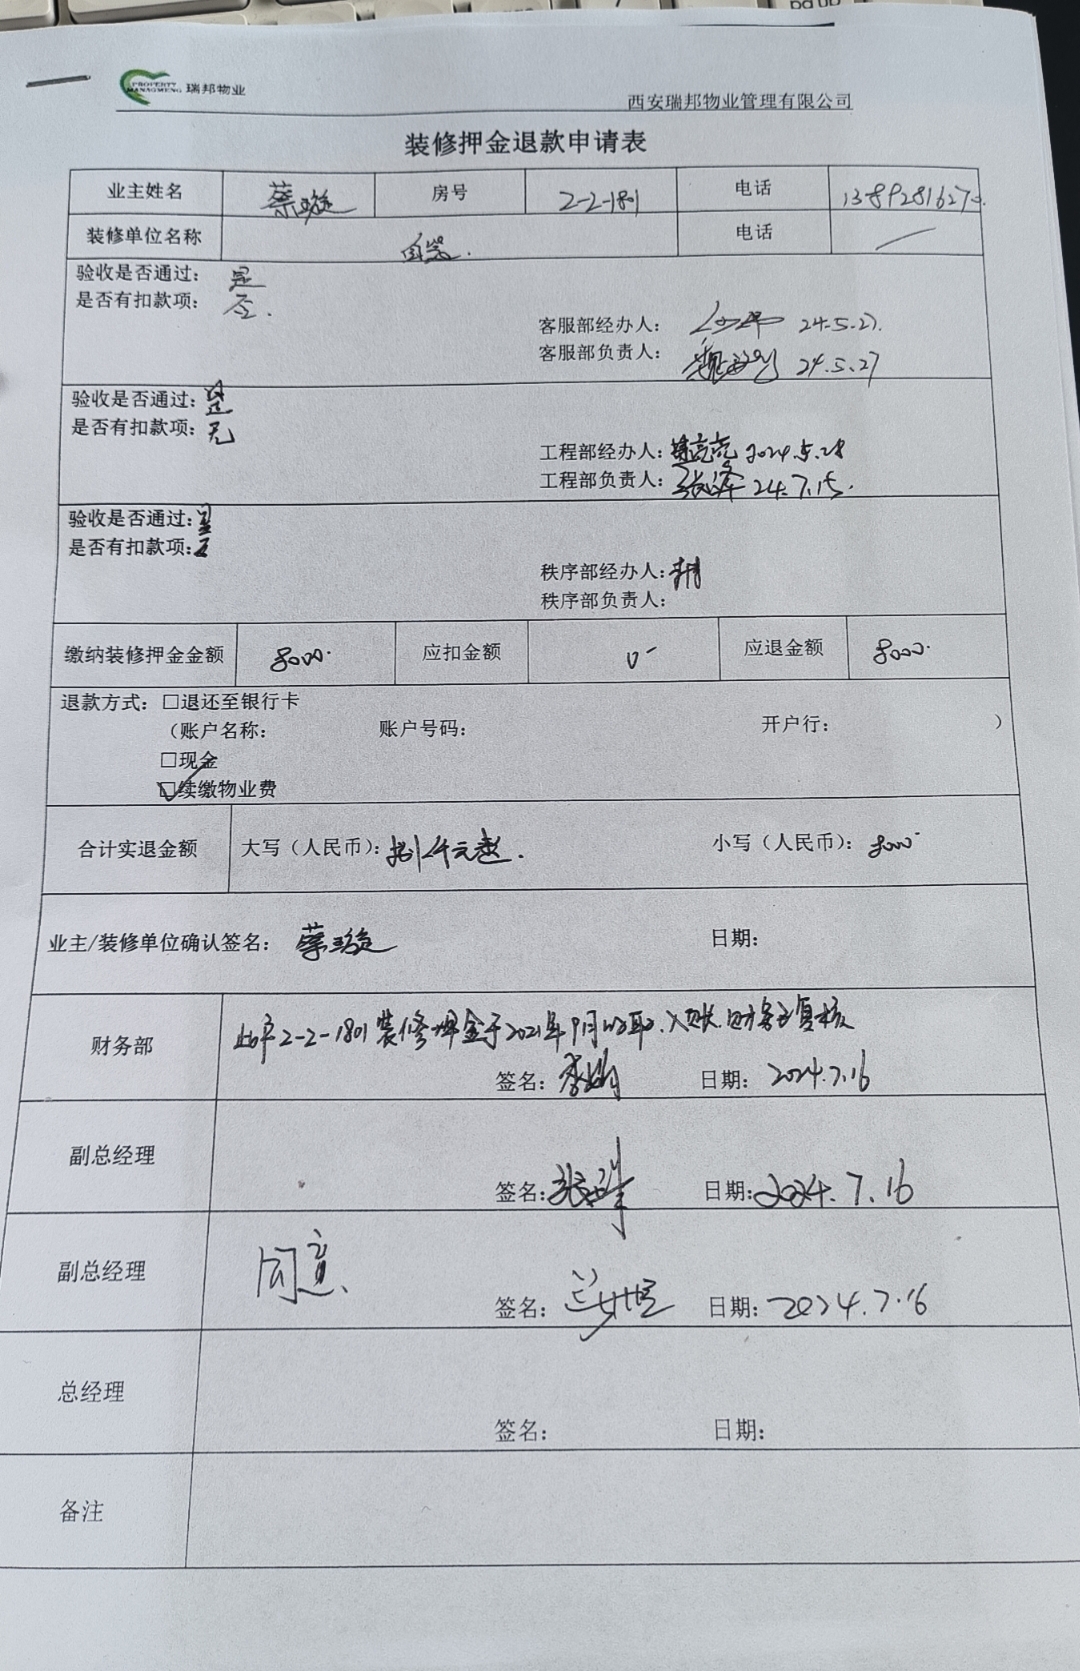 PROPERTY
MANAGMENG 瑞邦物业
西安瑞邦物业管理有限公司
装修押金退款申请表
业主姓名 蔡璇 房号 2-2-1801 电话
装修单位名称 自装. 电话 /
验收是否通过: 是
是否有扣款项: 否.
客服部经办人: 24.5.27.
客服部负责人: 24.5.27
验收是否通过: 是
是否有扣款项: 无
工程部经办人: 亮亮 2024.5.28
工程部负责人: 张泽 24.7.15.
验收是否通过: 是
是否有扣款项:
秩序部经办人:
秩序部负责人:
缴纳装修押金金额 8000. 应扣金额 0- 应退金额 8000.
退款方式: □退还至银行卡
(账户名称: 账户号码: 开户行: )
□现金
☑续缴物业费
合计实退金额 大写(人民币): 捌仟元整. 小写(人民币): 8000-
业主/装修单位确认签名: 蔡璇 日期:
财务部 此户2-2-1801装修押金于2021年9月收取,入账.财务已复核
签名: 李 日期: 2024.7.16
副总经理
签名: 张 日期: 2024.7.16
副总经理 同意.
签名: 日期: 2024.7.16
总经理
签名: 日期:
备注